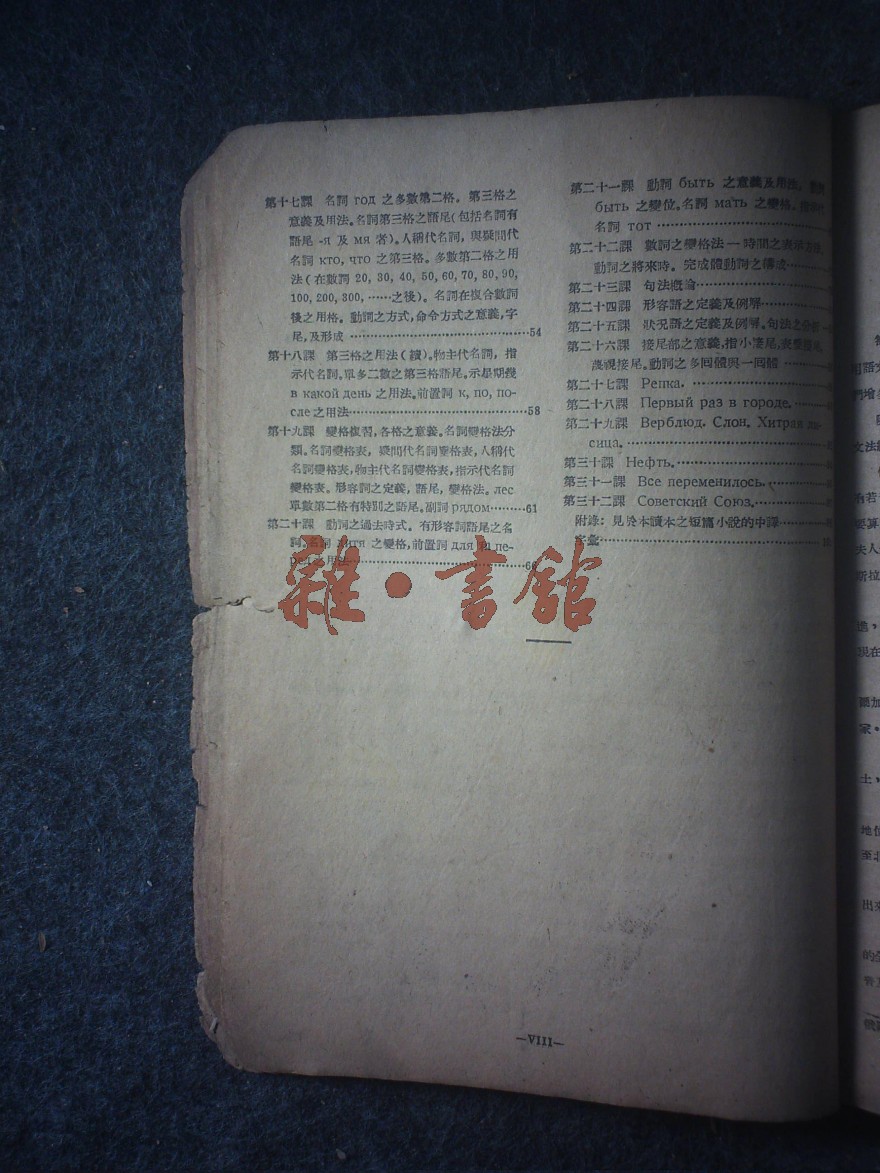 第十七課 名詞 год 之多數第二格。第三格之
意義及用法。名詞第三格之語尾(包括名詞有
語尾 -я 及 мя 者)。人稱代名詞,與疑問代
名詞 кто, что 之第三格。多數第二格之用
法(在數詞 20, 30, 40, 50, 60, 70, 80, 90,
100, 200, 300, ……之後)。名詞在複合數詞
後之用格。動詞之方式,命令方式之意義,字
尾,及形成 ……54
第十八課 第三格之用法(續)。物主代名詞,指
示代名詞,單多二數之第三格語尾。示星期幾
в какой день 之用法。前置詞 к, по, по-
сле 之用法……58
第十九課 變格復習,各格之意義。名詞變格法分
類。名詞變格表,疑問代名詞變格表,人稱代
名詞變格表,物主代名詞變格表,指示代名詞
變格表。形容詞之定義,語尾,變格法。лес
單數第二格有特別之語尾。副詞 рядом……61
第二十課 動詞之過去時式。有形容詞語尾之名
詞。名詞 дитя 之變格,前置詞 для 和 пе-
ред 之用法……66
第二十一課 動詞 быть 之意義及用法,
быть 之變位。名詞 мать 之變格。
名詞 тот ……
第二十二課 數詞之變格法—時間之表示方法。
動詞之將來時。完成體動詞之構成……
第二十三課 句法概論……
第二十四課 形容語之定義及例解……
第二十五課 狀況語之定義及例解。句法之分析
第二十六課 接尾部之意義,指小接尾,表愛接尾,
蔑視接尾。動詞之多回體與一回體 ……
第二十七課 Репка. ……
第二十八課 Первый раз в городе. ……
第二十九課 Верблюд. Слон. Хитрая ли-
сица. ……
第三十課 Нефть. ……
第三十一課 Все переменилось. ……
第三十二課 Советский Союз. ……
附錄:見於本讀本之短篇小說的中譯……
字彙……
雜·書館
—VIII—
們增
文法
有若
要算
夫人
斯拉
進,
現在
家。
士,
地位
出來
的